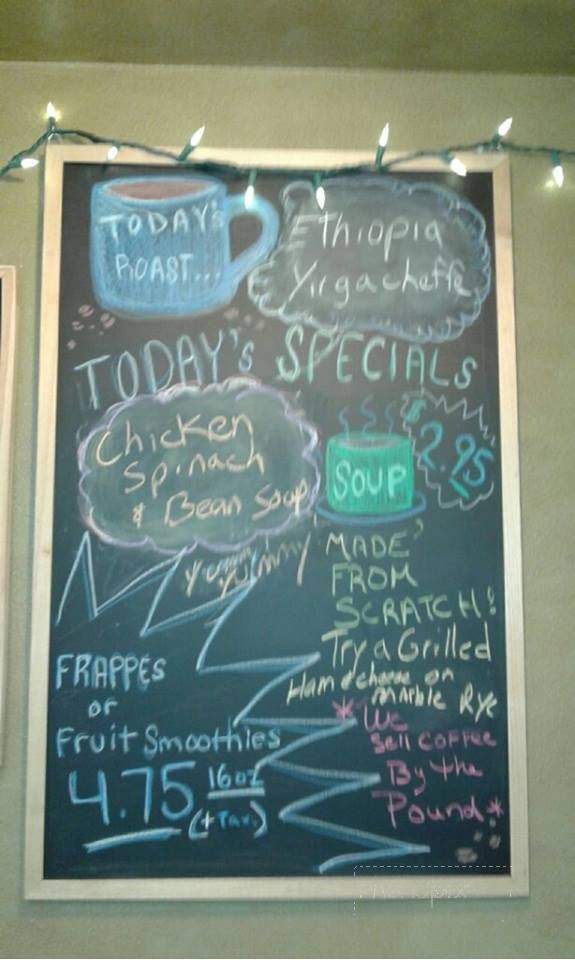 TODAY's
ROAST...
Ethiopia
Yirgacheffe
TODAY's SPECIALS
Chicken
Spinach
& Bean Soup
Yummy Yummy
SOUP
$2.95
MADE
FROM
SCRATCH!
Try a Grilled
Ham & cheese on
marble Rye
FRAPPES
or
Fruit Smoothies
4.75 16oz
(+ Tax)
*We
sell coffee
By the
Pound*